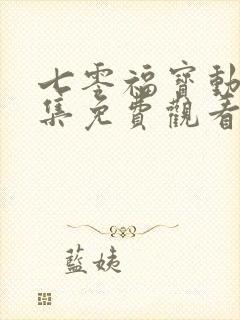 七零福寶動
集免費觀看
藍姨